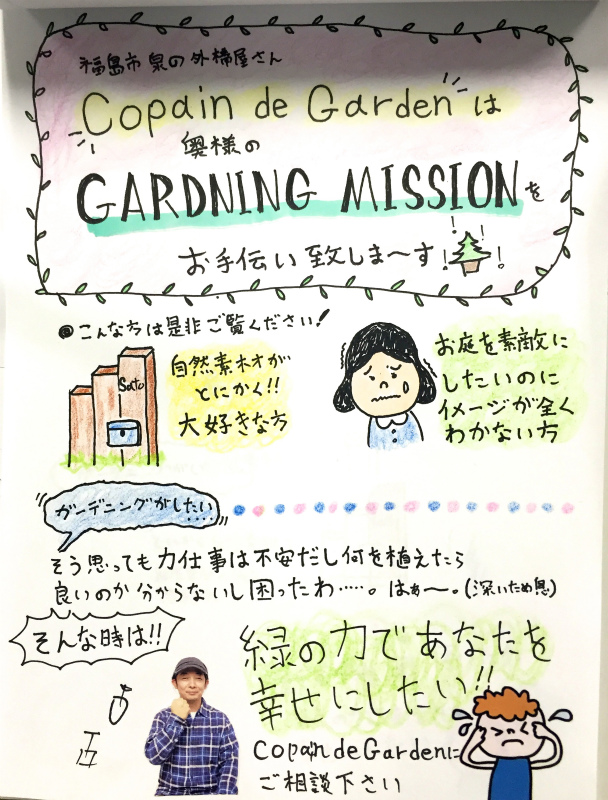 福島市 泉の外構屋さん
Copain de Garden は
奥様の
GARDNING MISSION を
お手伝い致しま〜す!!!
こんな方は是非ご覧ください!
Sato
自然素材が
とにかく!!
大好きな方
お庭を素敵に
したいのに
イメージが全く
わかない方
ガーデニングがしたい....
そう思っても力仕事は不安だし何を植えたら
良いのか分からないし困ったわ……。はぁ〜。(深いため息)
そんな時は!!
緑の力であなたを
幸せにしたい!!
Copain de Gardenに
ご相談下さい